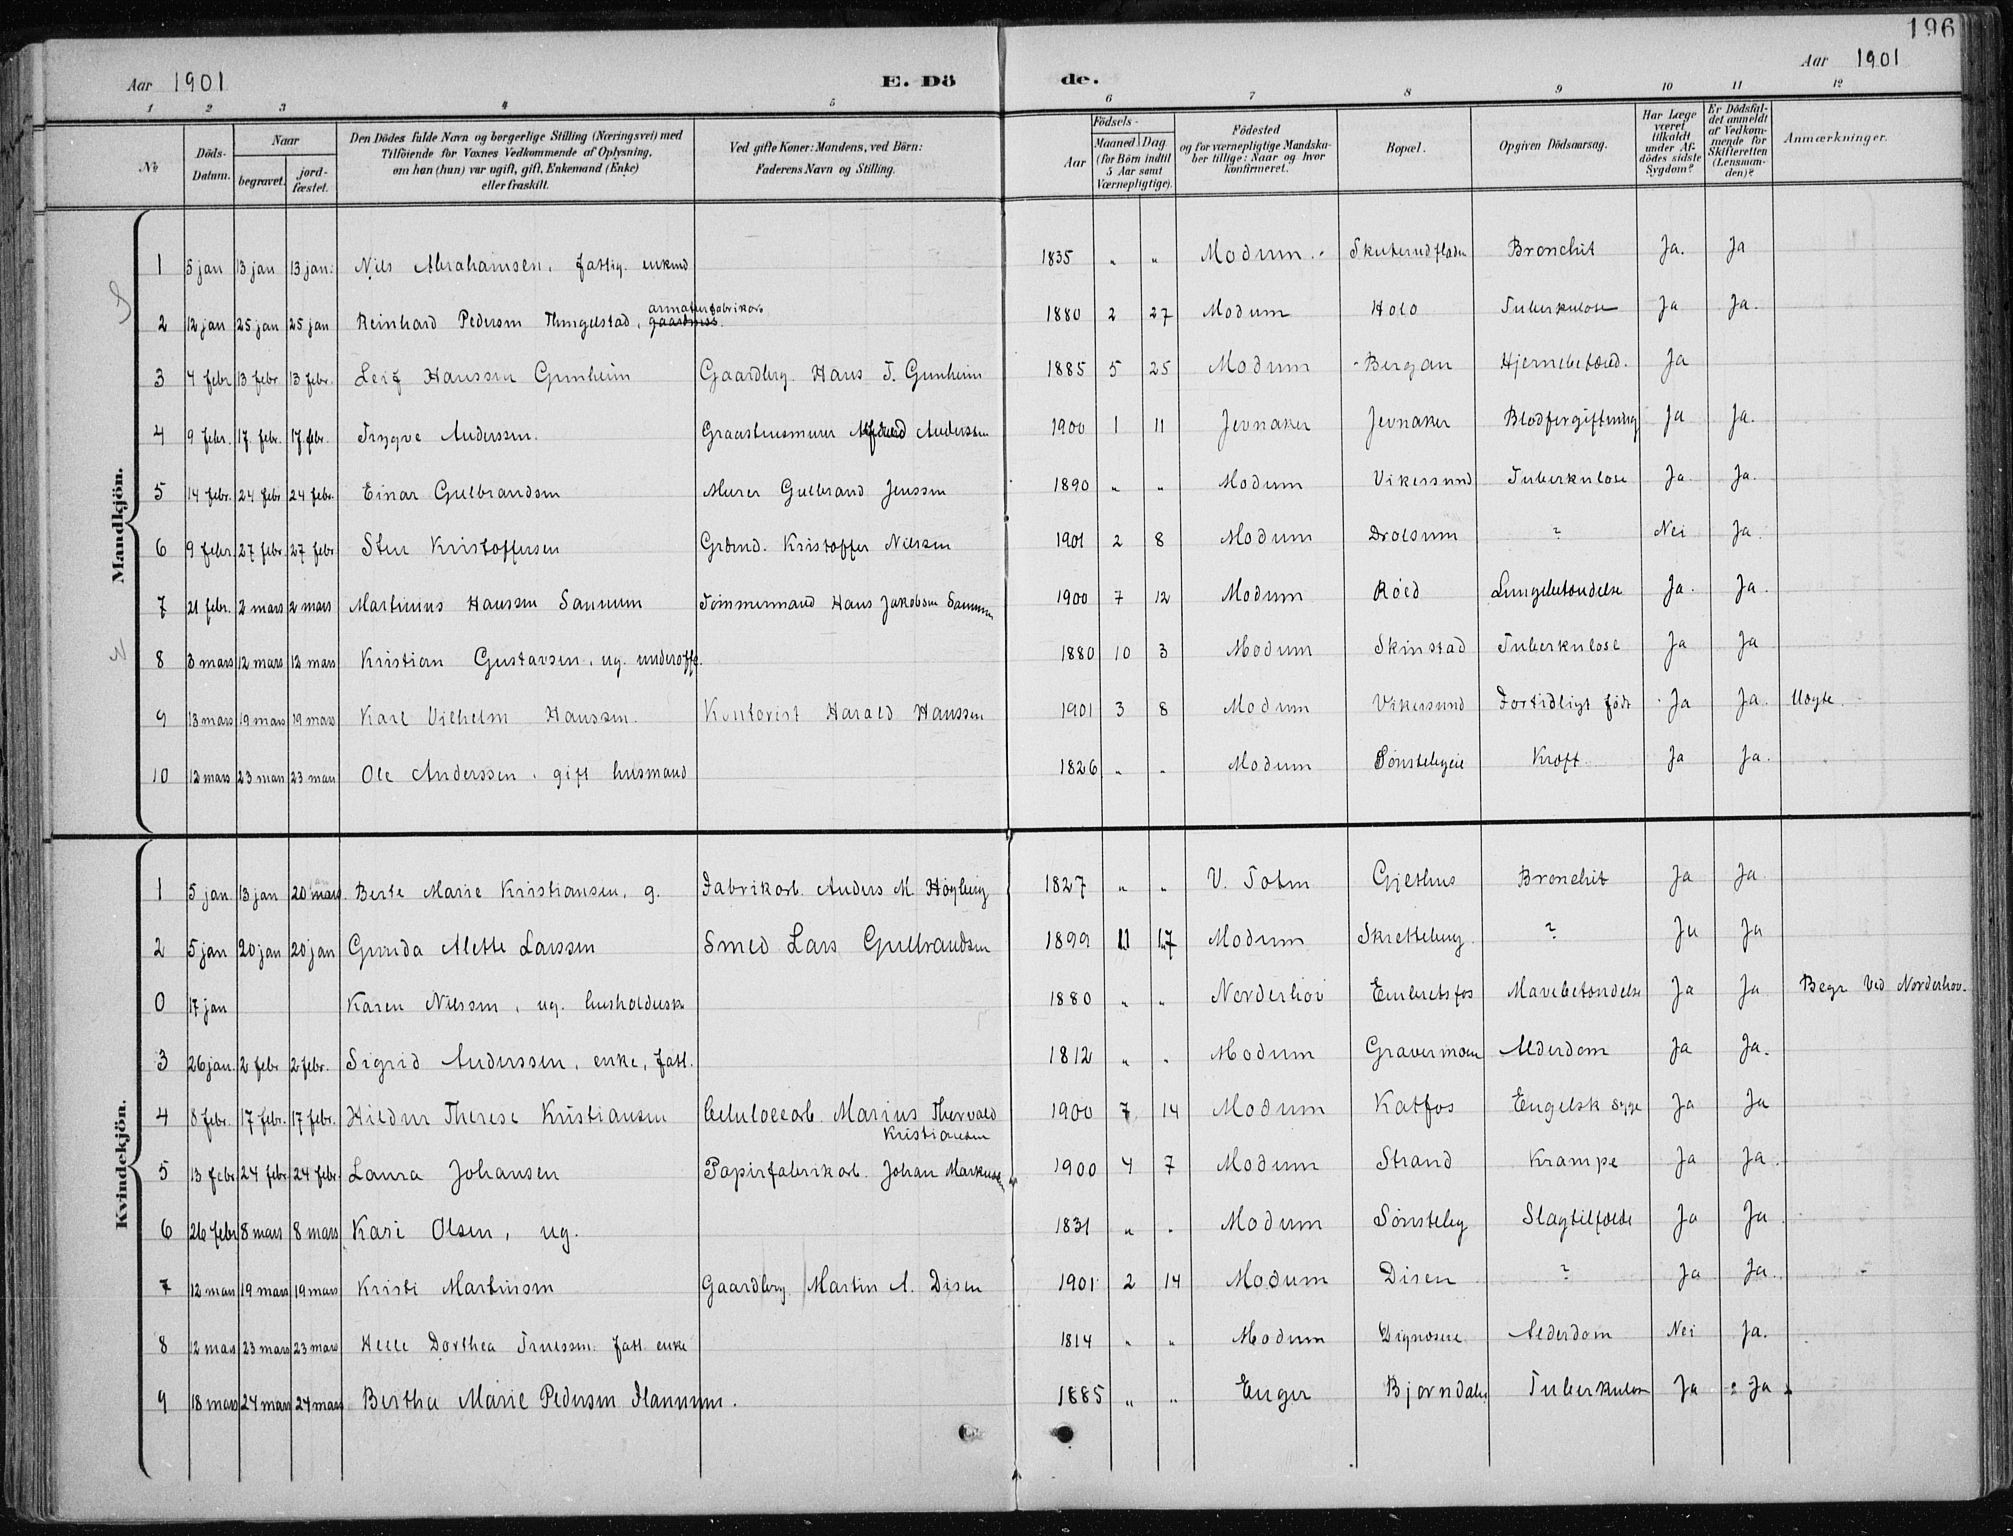 196
Aar 1901 E. Dö de. Aar 1901
1 2 3 4 5 6 7 8 9 10 11 12
№ Döds-Datum. Naar begravet. jord-fæstet. Den Dödes fulde Navn og borgerlige Stilling (Næringsvei) med Tilföiende for Voxnes Vedkommende af Oplysning, om han (hun) var ugift, gift, Enkemand (Enke) eller fraskilt. Ved gifte Koner: Mandens, ved Börn: Faderens Navn og Stilling. Födsels- Aar Maaned Dag (for Börn indtil 5 Aar samt Værnepligtige). Födested og for værnepligtige Mandskaber tillige: Naar og hvor konfirmeret. Bopæl. Opgiven Dödsaarsag. Har Læge været tilkaldt under Afdödes sidste Sygdom? Er Dödsfaldet anmeldt af Vedkommende for Skifteretten (Lensmanden)? Anmærkninger.
Mandkjön.
1 5 jan 13 jan 13 jan. Nils Abrahamsen, fattig. enkmd 1835 " " Modum Skuterudfladen Bronchit Ja. Ja
2 12 jan 25 jan 25 jan Reinhard Pedersen Thingelstad, armaturfabrikarb. 1880 2 27 Modum Holo Tuberkulose Ja Ja.
3 4 febr 13 febr. 13 febr. Leif Hanssen Gunheim Gaardbrg. Hans T. Gunheim 1885 5 25 Modum Bergan Hjernebetænd. Ja
4 9 febr. 17. febr. 17. febr. Trygve Anderssen. Graastensmurer Anderssen 1900 1 11 Jevnaker Jevnaker Blodforgiftning Ja Ja.
5 14 febr. 24 febr 24 febr. Einar Gulbrandsen Murer Gulbrand Jenssen 1890 " " Modum Vikersund Tuberkulose Ja. Ja.
6 9 febr. 27 febr. 27 febr Sten Kristoffersen Grdmd. Kristoffer Nilssen 1901 2 8 Modum Drolsum ? Nei Ja.
7 21 febr. 2 mars 2 mars Martinius Hanssen Sannum Tømmermand Hans Jakobsen Sannum 1900 7 12 Modum Røed Lungebetændelse Ja. Ja.
8 3 mars 12 mars 12 mars Kristian Gustavsen, ug. underoffs. 1880 10 3 Modum Skinstad Tuberkulose Ja Ja
9 13 mars 19 mars 19 mars Karl Vilhelm Hanssen. Kontorist Harald Hanssen 1901 3 8 Modum Vikersund Fortidligt født Ja Ja. Uegte.
10 12 mars 23 mars 23 mars Ole Anderssen, gift husmand 1826 " " Modum Sønstebyeie Kræft. Ja Ja.
Kvindekjön.
1 5 jan 13 jan 20 mars Berte Marie Kristiansen, g. Fabrikarb. Anders M. Høyberg 1827 " " V. Toten Gjethus Bronchit Ja Ja
2 5 jan 20 jan 20 jan Gunda Alette Larssen Smed Lars Gulbrandsen 1899 11 17 Modum Skretteberg. ? Ja Ja
0 17 jan Karen Nilssen, ug. husholderske 1880 " " Norderhov Embretsfos Mavebetændelse Ja Ja Begr. ved Norderhov.
3 26 jan. 2 febr 2 febr. Sigrid Anderssen, enke, fatt. 1812 " " Modum Gravermoen Alderdom Ja Ja.
4 8 febr. 17 febr. 17 febr. Hildur Therese Kristiansen Celulosearb. Marius Thorvald Kristiansen 1900 7 14 Modum Katfos Engelsk syge Ja Ja
5 13 febr 24 febr 24 febr. Laura Johansen Papirfabrikarb. Johan Markussen 1900 4 7 Modum Strand Krampe Ja Ja.
6 26 febr 8 mars 8 mars Kari Olsen, ug. 1831 " " Modum Sønsteby Slagtilfælde Ja Ja
7 12 mars 19 mars 19 mars Kristi Martinsen Gaardbrg Martin A. Disen 1901 2 14 Modum Disen ? Ja Ja.
8 12 mars 23 mars 23 mars Helle Dorthea Truessen. fatt. enke 1814 " " Modum Dignæseie Alderdom Nei Ja.
9 18 mars 24 mars 24 mars Bertha Marie Pedersen Flannum. 1885 " " Enger Bjørndalen Tuberkulose Ja Ja